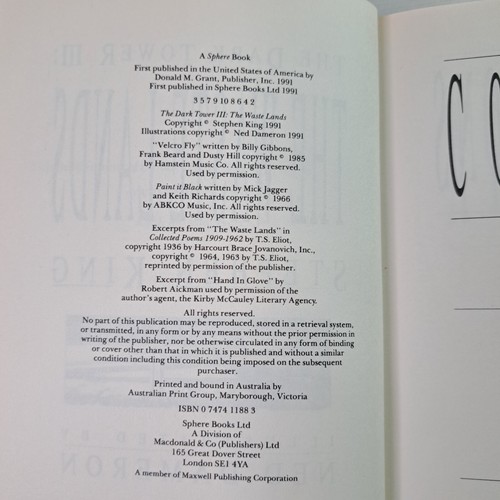 A Sphere Book
First published in the United States of America by
Donald M. Grant, Publisher, Inc. 1991
First published in Sphere Books Ltd 1991
3 5 7 9 10 8 6 4 2
The Dark Tower III: The Waste Lands
Copyright © Stephen King 1991
Illustrations copyright © Ned Dameron 1991
"Velcro Fly" written by Billy Gibbons,
Frank Beard and Dusty Hill copyright © 1985
by Hamstein Music Co. All rights reserved.
Used by permission.
Paint it Black written by Mick Jagger
and Keith Richards copyright © 1966
by ABKCO Music, Inc. All rights reserved.
Used by permission.
Excerpts from "The Waste Lands" in
Collected Poems 1909-1962 by T.S. Eliot,
copyright 1936 by Harcourt Brace Jovanovich, Inc.,
copyright © 1964, 1963 by T.S. Eliot,
reprinted by permission of the publisher.
Excerpt from "Hand In Glove" by
Robert Aickman used by permission of the
author's agent, the Kirby McCauley Literary Agency.
All rights reserved.
No part of this publication may be reproduced, stored in a retrieval system,
or transmitted, in any form or by any means without the prior permission in
writing of the publisher, nor be otherwise circulated in any form of binding
or cover other than that in which it is published and without a similar
condition including this condition being imposed on the subsequent
purchaser.
Printed and bound in Australia by
Australian Print Group, Maryborough, Victoria
ISBN 0 7474 1188 3
Sphere Books Ltd
A Division of
Macdonald & Co (Publishers) Ltd
165 Great Dover Street
London SE1 4YA
A member of Maxwell Publishing Corporation
C O